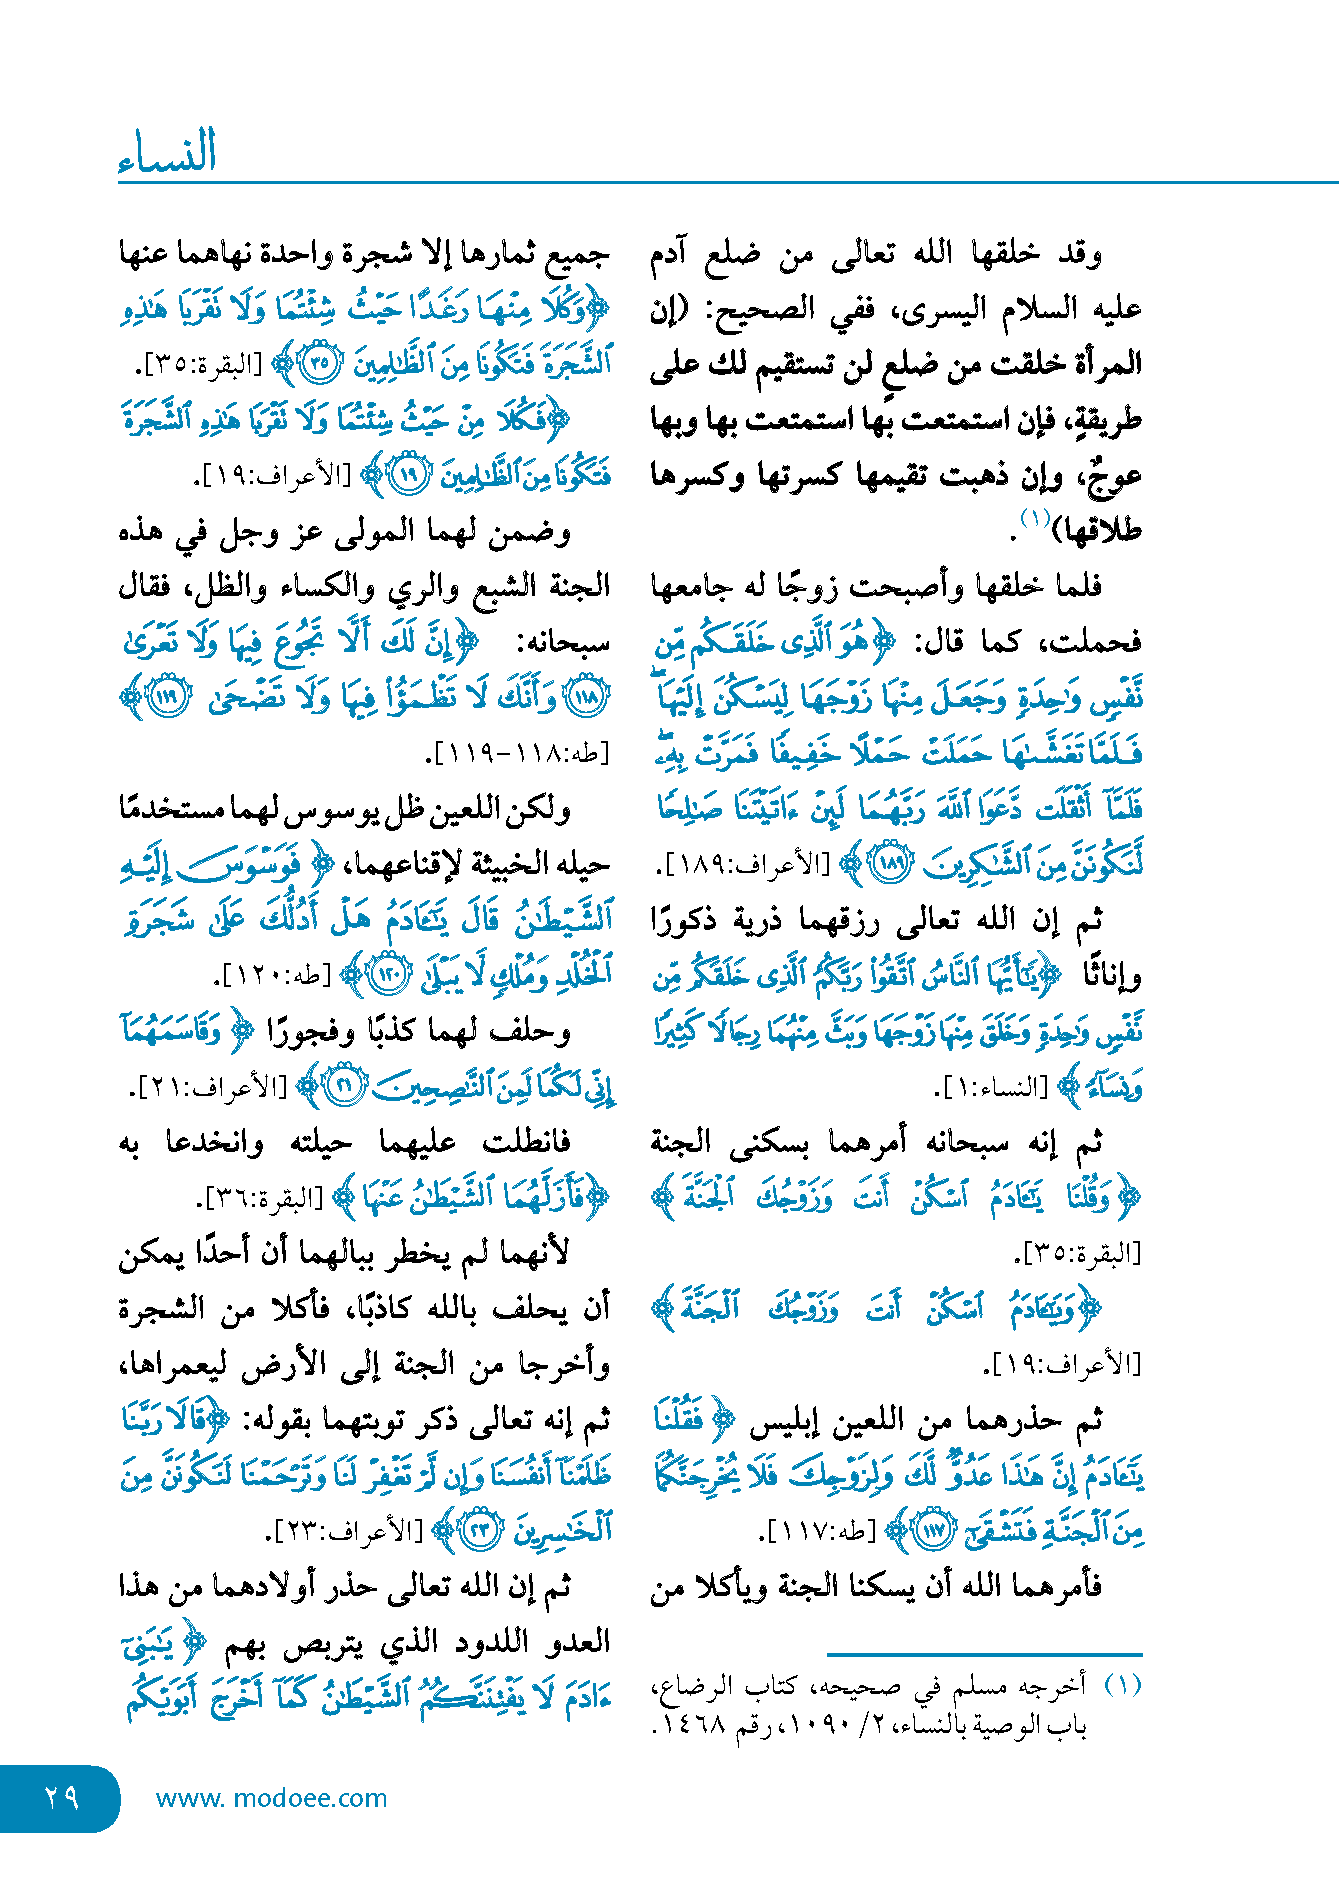 النساء
وقد خلقها الله تعالى من ضلع آدم
عليه السلام اليسرى، ففي الصحيح: (إن
المرأة خلقت من ضلعٍ لن تستقيم لك على
طريقةٍ، فإن استمتعت بها استمتعت بها وبها
عوجٌ، وإن ذهبت تقيمها كسرتها وكسرها
طلاقها)(١).
فلما خلقها وأصبحت زوجًا له جامعها
فحملت، كما قال: ﴿هُوَ ٱلَّذِى خَلَقَكُم مِّن
نَّفْسٍ وَٰحِدَةٍ وَجَعَلَ مِنْهَا زَوْجَهَا لِيَسْكُنَ إِلَيْهَا ۖ
فَلَمَّا تَغَشَّىٰهَا حَمَلَتْ حَمْلًا خَفِيفًا فَمَرَّتْ بِهِۦ ۖ
فَلَمَّآ أَثْقَلَت دَّعَوَا ٱللَّهَ رَبَّهُمَا لَئِنْ ءَاتَيْتَنَا صَٰلِحًا
لَّنَكُونَنَّ مِنَ ٱلشَّٰكِرِينَ ١٨٩﴾ [الأعراف:١٨٩].
ثم إن الله تعالى رزقهما ذرية ذكورًا
وإناثًا ﴿يَٰٓأَيُّهَا ٱلنَّاسُ ٱتَّقُوا۟ رَبَّكُمُ ٱلَّذِى خَلَقَكُم مِّن
نَّفْسٍ وَٰحِدَةٍ وَخَلَقَ مِنْهَا زَوْجَهَا وَبَثَّ مِنْهُمَا رِجَالًا كَثِيرًا
وَنِسَآءً﴾ [النساء:١].
ثم إنه سبحانه أمرهما بسكنى الجنة
﴿وَقُلْنَا يَٰٓـَٔادَمُ ٱسْكُنْ أَنتَ وَزَوْجُكَ ٱلْجَنَّةَ﴾
[البقرة:٣٥].
﴿وَيَٰٓـَٔادَمُ ٱسْكُنْ أَنتَ وَزَوْجُكَ ٱلْجَنَّةَ﴾
[الأعراف:١٩].
ثم حذرهما من اللعين إبليس ﴿فَقُلْنَا
يَٰٓـَٔادَمُ إِنَّ هَٰذَا عَدُوٌّ لَّكَ وَلِزَوْجِكَ فَلَا يُخْرِجَنَّكُمَا
مِنَ ٱلْجَنَّةِ فَتَشْقَىٰٓ ١١٧﴾ [طه:١١٧].
فأمرهما الله أن يسكنا الجنة ويأكلا من
(١) أخرجه مسلم في صحيحه، كتاب الرضاع،
باب الوصية بالنساء، ٢/ ١٠٩٠، رقم ١٤٦٨.
جميع ثمارها إلا شجرة واحدة نهاهما عنها
﴿وَكُلَا مِنْهَا رَغَدًا حَيْثُ شِئْتُمَا وَلَا تَقْرَبَا هَٰذِهِ
ٱلشَّجَرَةَ فَتَكُونَا مِنَ ٱلظَّٰلِمِينَ ٣٥﴾ [البقرة:٣٥].
﴿فَكُلَا مِنْ حَيْثُ شِئْتُمَا وَلَا تَقْرَبَا هَٰذِهِ ٱلشَّجَرَةَ
فَتَكُونَا مِنَ ٱلظَّٰلِمِينَ ١٩﴾ [الأعراف:١٩].
وضمن لهما المولى عز وجل في هذه
الجنة الشبع والري والكساء والظل، فقال
سبحانه: ﴿إِنَّ لَكَ أَلَّا تَجُوعَ فِيهَا وَلَا تَعْرَىٰ
١١٨ وَأَنَّكَ لَا تَظْمَؤُا۟ فِيهَا وَلَا تَضْحَىٰ ١١٩﴾
[طه:١١٨-١١٩].
ولكن اللعين ظل يوسوس لهما مستخدمًا
حيله الخبيثة لإقناعهما، ﴿فَوَسْوَسَ إِلَيْهِ
ٱلشَّيْطَٰنُ قَالَ يَٰٓـَٔادَمُ هَلْ أَدُلُّكَ عَلَىٰ شَجَرَةِ
ٱلْخُلْدِ وَمُلْكٍ لَّا يَبْلَىٰ ١٢٠﴾ [طه:١٢٠].
وحلف لهما كذبًا وفجورًا ﴿وَقَاسَمَهُمَآ
إِنِّى لَكُمَا لَمِنَ ٱلنَّٰصِحِينَ ٢١﴾ [الأعراف:٢١].
فانطلت عليهما حيلته وانخدعا به
﴿فَأَزَلَّهُمَا ٱلشَّيْطَٰنُ عَنْهَا﴾ [البقرة:٣٦].
لأنهما لم يخطر ببالهما أن أحدًا يمكن
أن يحلف بالله كاذبًا، فأكلا من الشجرة
وأخرجا من الجنة إلى الأرض ليعمراها،
ثم إنه تعالى ذكر توبتهما بقوله: ﴿قَالَا رَبَّنَا
ظَلَمْنَآ أَنفُسَنَا وَإِن لَّمْ تَغْفِرْ لَنَا وَتَرْحَمْنَا لَنَكُونَنَّ مِنَ
ٱلْخَٰسِرِينَ ٢٣﴾ [الأعراف:٢٣].
ثم إن الله تعالى حذر أولادهما من هذا
العدو اللدود الذي يتربص بهم ﴿يَٰبَنِىٓ
ءَادَمَ لَا يَفْتِنَنَّكُمُ ٱلشَّيْطَٰنُ كَمَآ أَخْرَجَ أَبَوَيْكُم
٢٩
www. modoee.com